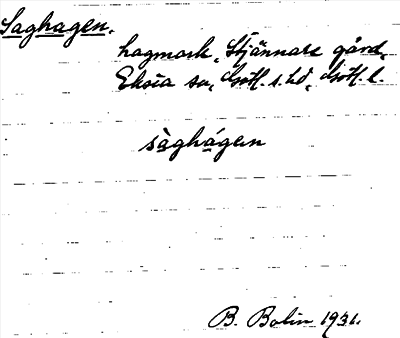 Saghagen.
hagmark, Stjännare gård,
Ekeia sn, Gotl. s. hd, Gotl. l.
sàghágen
B. Bolin 1931.